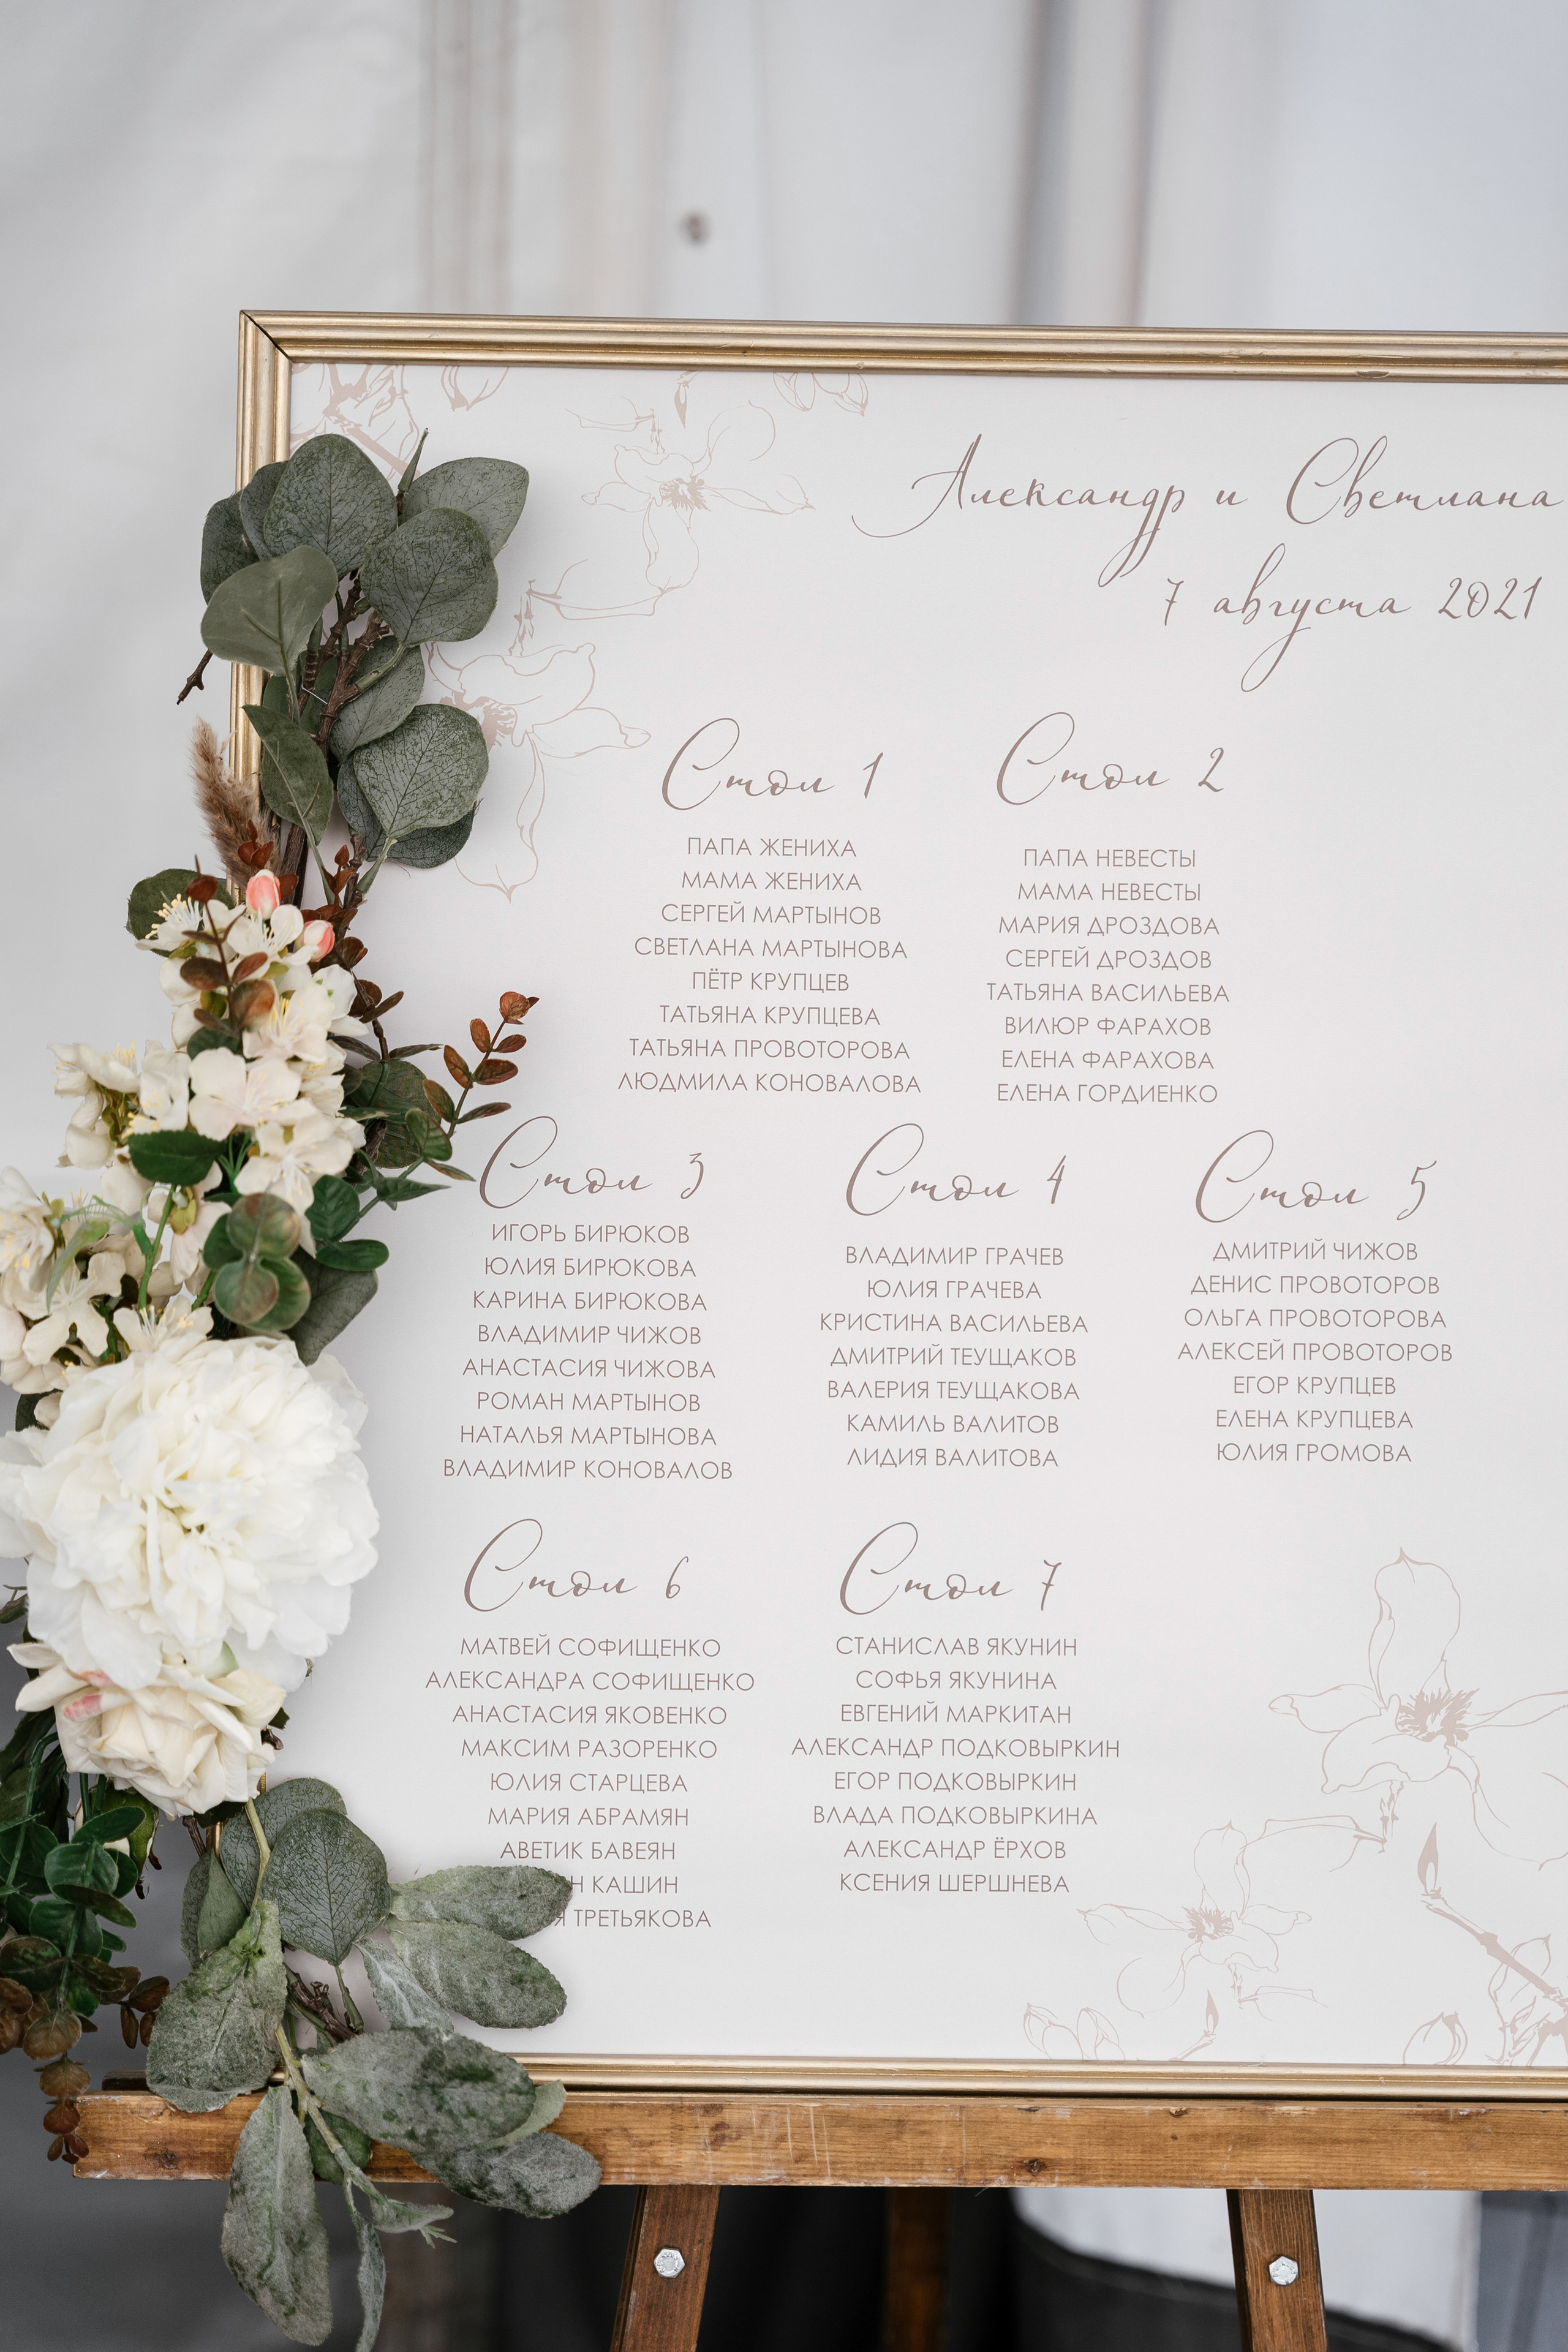 Александр и Светлана
7 августа 2021
Стол 1
ПАПА ЖЕНИХА
МАМА ЖЕНИХА
СЕРГЕЙ МАРТЫНОВ
СВЕТЛАНА МАРТЫНОВА
ПЁТР КРУПЦЕВ
ТАТЬЯНА КРУПЦЕВА
ТАТЬЯНА ПРОВОТОРОВА
ЛЮДМИЛА КОНОВАЛОВА
Стол 2
ПАПА НЕВЕСТЫ
МАМА НЕВЕСТЫ
МАРИЯ ДРОЗДОВА
СЕРГЕЙ ДРОЗДОВ
ТАТЬЯНА ВАСИЛЬЕВА
ВИЛЮР ФАРАХОВ
ЕЛЕНА ФАРАХОВА
ЕЛЕНА ГОРДИЕНКО
Стол 3
ИГОРЬ БИРЮКОВ
ЮЛИЯ БИРЮКОВА
КАРИНА БИРЮКОВА
ВЛАДИМИР ЧИЖОВ
АНАСТАСИЯ ЧИЖОВА
РОМАН МАРТЫНОВ
НАТАЛЬЯ МАРТЫНОВА
ВЛАДИМИР КОНОВАЛОВ
Стол 4
ВЛАДИМИР ГРАЧЕВ
ЮЛИЯ ГРАЧЕВА
КРИСТИНА ВАСИЛЬЕВА
ДМИТРИЙ ТЕУЩАКОВ
ВАЛЕРИЯ ТЕУЩАКОВА
КАМИЛЬ ВАЛИТОВ
ЛИДИЯ ВАЛИТОВА
Стол 5
ДМИТРИЙ ЧИЖОВ
ДЕНИС ПРОВОТОРОВ
ОЛЬГА ПРОВОТОРОВА
АЛЕКСЕЙ ПРОВОТОРОВ
ЕГОР КРУПЦЕВ
ЕЛЕНА КРУПЦЕВА
ЮЛИЯ ГРОМОВА
Стол 6
МАТВЕЙ СОФИЩЕНКО
АЛЕКСАНДРА СОФИЩЕНКО
АНАСТАСИЯ ЯКОВЕНКО
МАКСИМ РАЗОРЕНКО
ЮЛИЯ СТАРЦЕВА
МАРИЯ АБРАМЯН
АВЕТИК БАВЕЯН
КАШИН
ТРЕТЬЯКОВА
Стол 7
СТАНИСЛАВ ЯКУНИН
СОФЬЯ ЯКУНИНА
ЕВГЕНИЙ МАРКИТАН
АЛЕКСАНДР ПОДКОВЫРКИН
ЕГОР ПОДКОВЫРКИН
ВЛАДА ПОДКОВЫРКИНА
АЛЕКСАНДР ЁРХОВ
КСЕНИЯ ШЕРШНЕВА